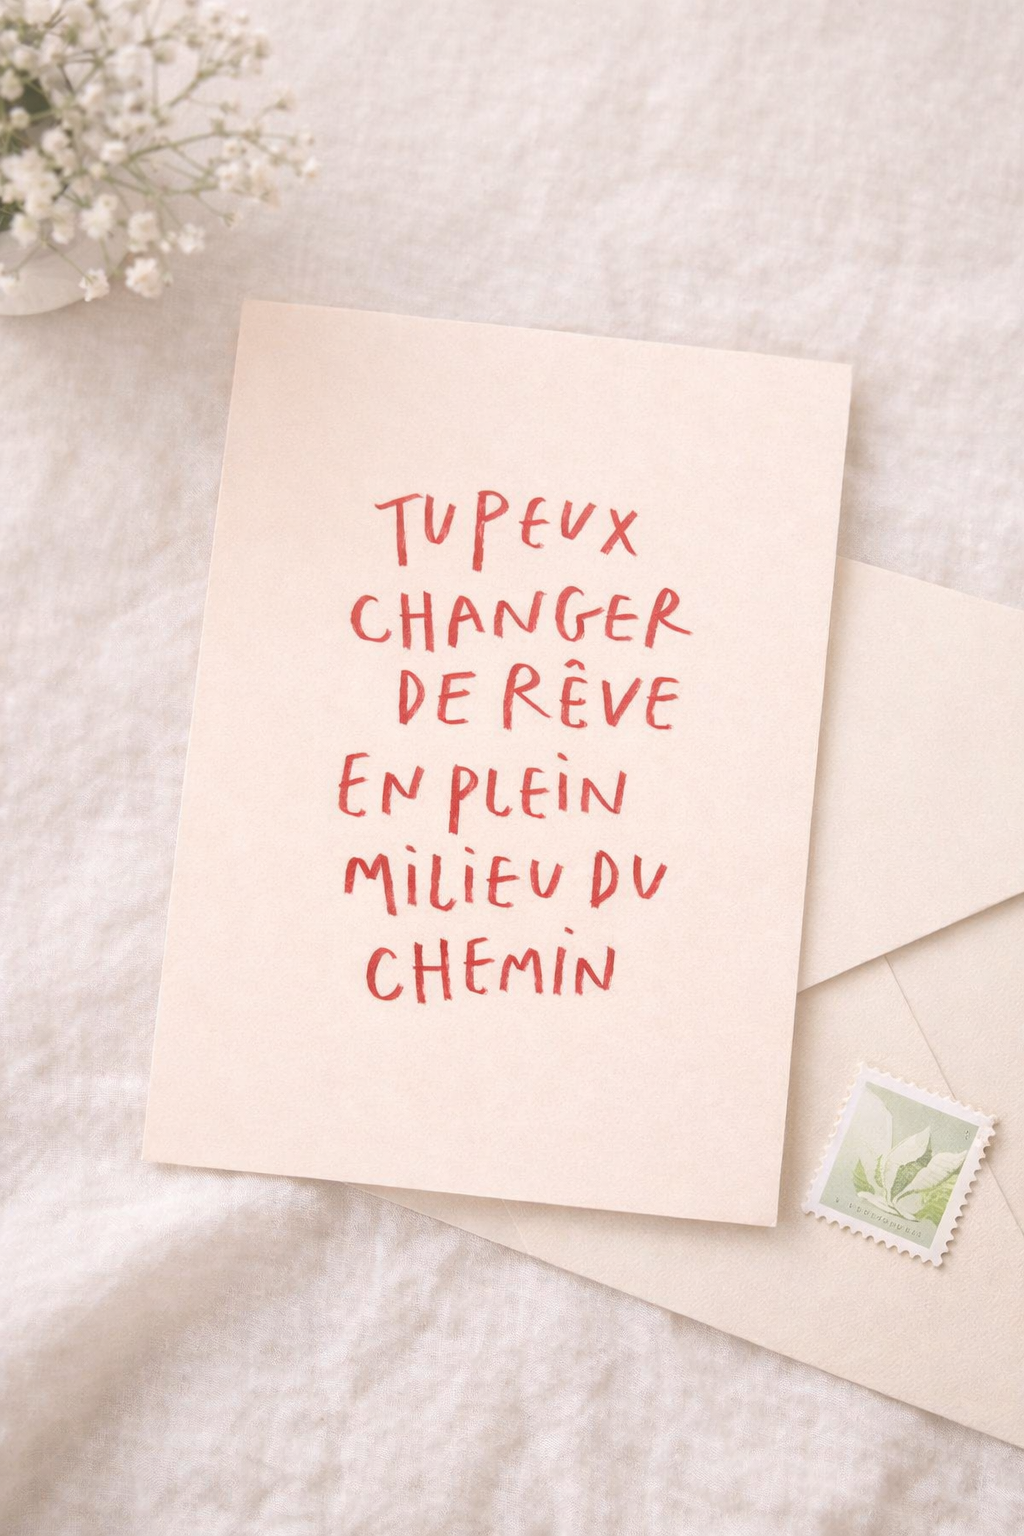 TU PEUX
CHANGER
DE RÊVE
EN PLEIN
MILIEU DU
CHEMIN